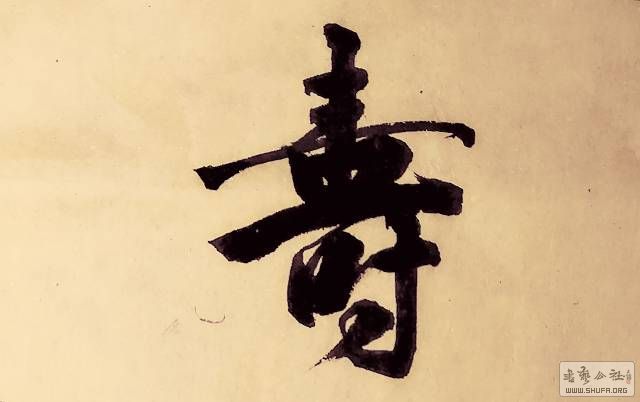 壽
书艺公社
WWW.SHUFA.ORG